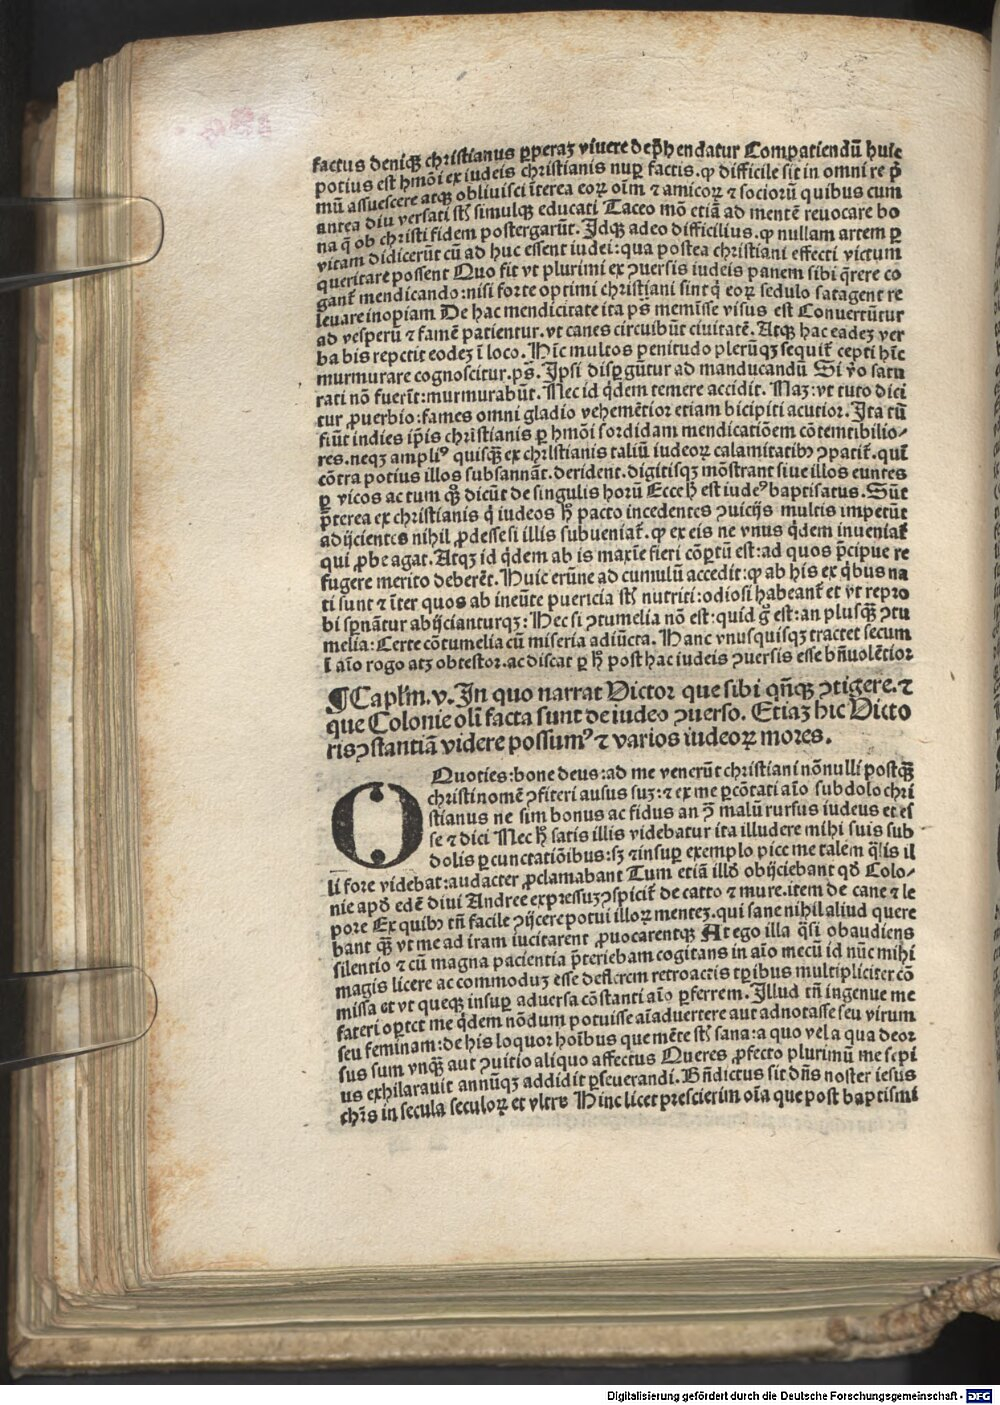 factus deniqꝫ christianus ꝑperaꝫ viuere dep̄hendatur Compatiendū huic
potius est hmōi ex iudeis christianis nuꝑ factis. ꝙ difficile sit in omni re p̄
mū assuescere atqꝫ obliuisci īterea eoꝝ oīm ⁊ amicoꝝ ⁊ socioꝝ quibus cum
antea diu versati sūt simulqꝫ educati Taceo mō etiā ad mentē reuocare bo
na q̄ ob christi fidem postergarūt. Idqꝫ adeo difficilius. ꝙ nullam artem ꝑ
vitam didicerūt cū ad huc essent iudei: qua postea christiani effecti victum
queritare possent Quo fit vt plurimi ex ꝯuersis iudeis panem sibi q̄rere co
gant̄ mendicando: nisi forte optimi christiani sint q̇ eoꝝ sedulo satagent re
leuare inopiam De hac mendicitate ita ps̄ meminisse visus est Conuertūtur
ad vesperū ⁊ famē patientur. vt canes circuibūt ciuitatē. Atqꝫ hac eadeꝫ ver
ba bis repetit eodeꝫ ī loco. Hīc multos penitudo plerūqꝫ sequit̄ cepti hīc
murmurare cognoscitur. ps̄. Ipsi disꝑgūtur ad manducandū Si ṽo satu
rati nō fuerīt: murmurabūt. Nec id q̇dem temere accidit. Naꝫ: vt tuto dici
tur ꝓuerbio: fames omni gladio vehemētior etiam bicipiti acutior. Ita tū
fiūt indies ip̄is christianis ꝑ hmōi sordidam mendicatiōem cōtemtibilio/
res. neqꝫ ampliꝰ quisqꝫ̄ ex chrIstianis taliū iudeoꝝ calamitatibꝫ ꝯpatit̄. quī
cōtra potius illos subsannāt. derident. digitisqꝫ mōstrant siue illos euntes
ꝑ vicos ac tum qꝫ̄ dicūt de singulis horū Ecce h̄ est iudeꝰ baptisatus. Sūt
p̄terea ex christianis q̇ iudeos h̄ pacto incedentes ꝯuicijs multis impetūt
adijcientes nihil ꝓdesse si illis subueniat̄. ꝙ ex eis ne vnus q̇dem inueniat̄
qui ꝓbe agat. Atqꝫ id q̇dem ab is maxīe fieri cōꝑtū est: ad quos p̄cipue re
fugere merito deberēt. Huic erūne ad cumulū accedit: ꝙ ab his ex q̇bus na
ti sunt ⁊ īter quos ab ineūte puericia sūt nutriti: odiosi habeant̄ et vt repro
bi sꝑnātur abijcianturqꝫ: Hec si ꝯtumelia nō est: quid gͦ est: an plusqꝫ̄ ꝯtu
melia: Certe cōtumelia cū miseria adiūcta. Hanc vnusquisqꝫ tractet secum
ī aīo rogo atꝫ obtestor. ac discat ꝑ h̄ post hac iudeis ꝯuersis esse bn̄uolētior
¶ Caplm̄. v. In quo narrat Victor que sibi qn̄qꝫ ꝯtigere. ⁊
que Colonie olī facta sunt de iudeo ꝯuerso. Etiaꝫ hic Victo
ris ꝯstantiā videre possumꝰ ⁊ varios iudeoꝝ mores.
OQuoties: bone deus: ad me venerūt christiani nōnulli postqꝫ̄
christi nomē ꝯfiteri ausus suꝫ: ⁊ ex me ꝑcōtati aīo subdolo chri
stianus ne sim bonus ac fidus an ꝯ̄ malū rursus iudeus et es
se ⁊ dici Nec h̄ satis illis videbatur ita illudere mihi suis sub
dolis ꝑcunctatiōibus: sꝫ ⁊ insuꝑ exemplo pice me talem q̄lis il
lī fore videbat: audacter ꝓclamabant Tum etiā illđ obijciebant qđ Colo/
nie apđ edē diui Andree expressuꝫ ꝯspicit̄ de catto ⁊ mure. item de cane ⁊ le
pore Ex quibꝫ tn̄ facile ꝯijcere potui illoꝝ menteꝫ. qui sane nihil aliud quere
bant qꝫ̄ vt me ad iram incitarent ꝓuocarentqꝫ At ego illa q̄si obaudiens
silentio ⁊ cū magna pacientia p̄teriebam cogitans in aīo mecū id nūc mihi
magis licere ac commoduꝫ esse deflerem retroactis tꝑibus multipliciter cō
missa et vt queqꝫ insuꝑ aduersa cōstanti aīo ꝑferrem. Illud tn̄ ingenue me
fateri oꝑtet me q̇dem nōdum potuisse aīaduertere aut adnotasse seu virum
seu feminam: de his loquor hoībus que mēte sūt sana: a quo vel a qua deor
sus sum vnqꝫ̄ aut ꝯuitio aliquo affectus Queres ꝓfecto plurimū me sepi
us exhilarauit annūqꝫ addidit ꝑseuerandi. Bn̄dictus sit dn̄s noster iesus
chr̄s in secula seculoꝝ et vltra Hinc licet prescierim oīa que post baptismi
Digitalisierung gefördert durch die Deutsche Forschungsgemeinschaft - DFG